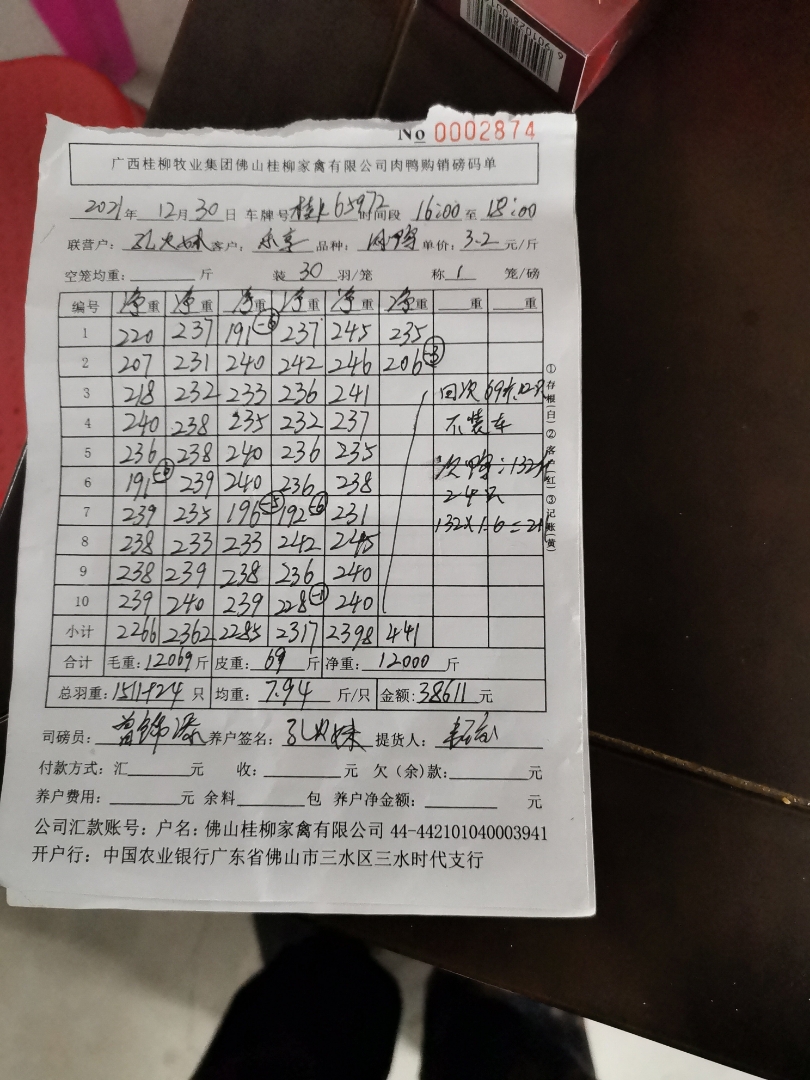 No 0002874
广西桂柳牧业集团佛山桂柳家禽有限公司肉鸭购销磅码单
2021年 12月 30日 车牌号 65972 时间段 16:00 至 18:00
联营户: 客户: 品种: 肉鸭 单价: 3.2 元/斤
空笼均重: 斤 装 30 羽/笼 称 1 笼/磅
编号 净重 净重 净重 净重 净重 净重 重 重
1 220 237 191 -6 237 245 235
2 207 231 240 242 246 206 -3
3 218 232 233 236 241 回次 69斤,12只
4 240 238 235 232 237 不装车
5 236 238 240 236 235 次鸭:132斤
6 191 -6 239 240 236 238 24只
7 239 235 196 -5 192 -6 231 132×1.6=21
8 238 233 233 242 245
9 238 239 238 236 240
10 239 240 239 228 -1 240
小计 2266 2362 2285 2317 2398 441
合计 毛重: 12069 斤 皮重: 69 斤 净重: 12000 斤
总羽重: 1511+24 只 均重: 7.94 斤/只 金额: 38611 元
司磅员: 养户签名: 提货人:
付款方式: 汇 元 收: 元 欠(余)款: 元
养户费用: 元 余料 包 养户净金额: 元
公司汇款账号: 户名: 佛山桂柳家禽有限公司 44-442101040003941
开户行: 中国农业银行广东省佛山市三水区三水时代支行
①存根(白)②客户(红)③记账(黄)